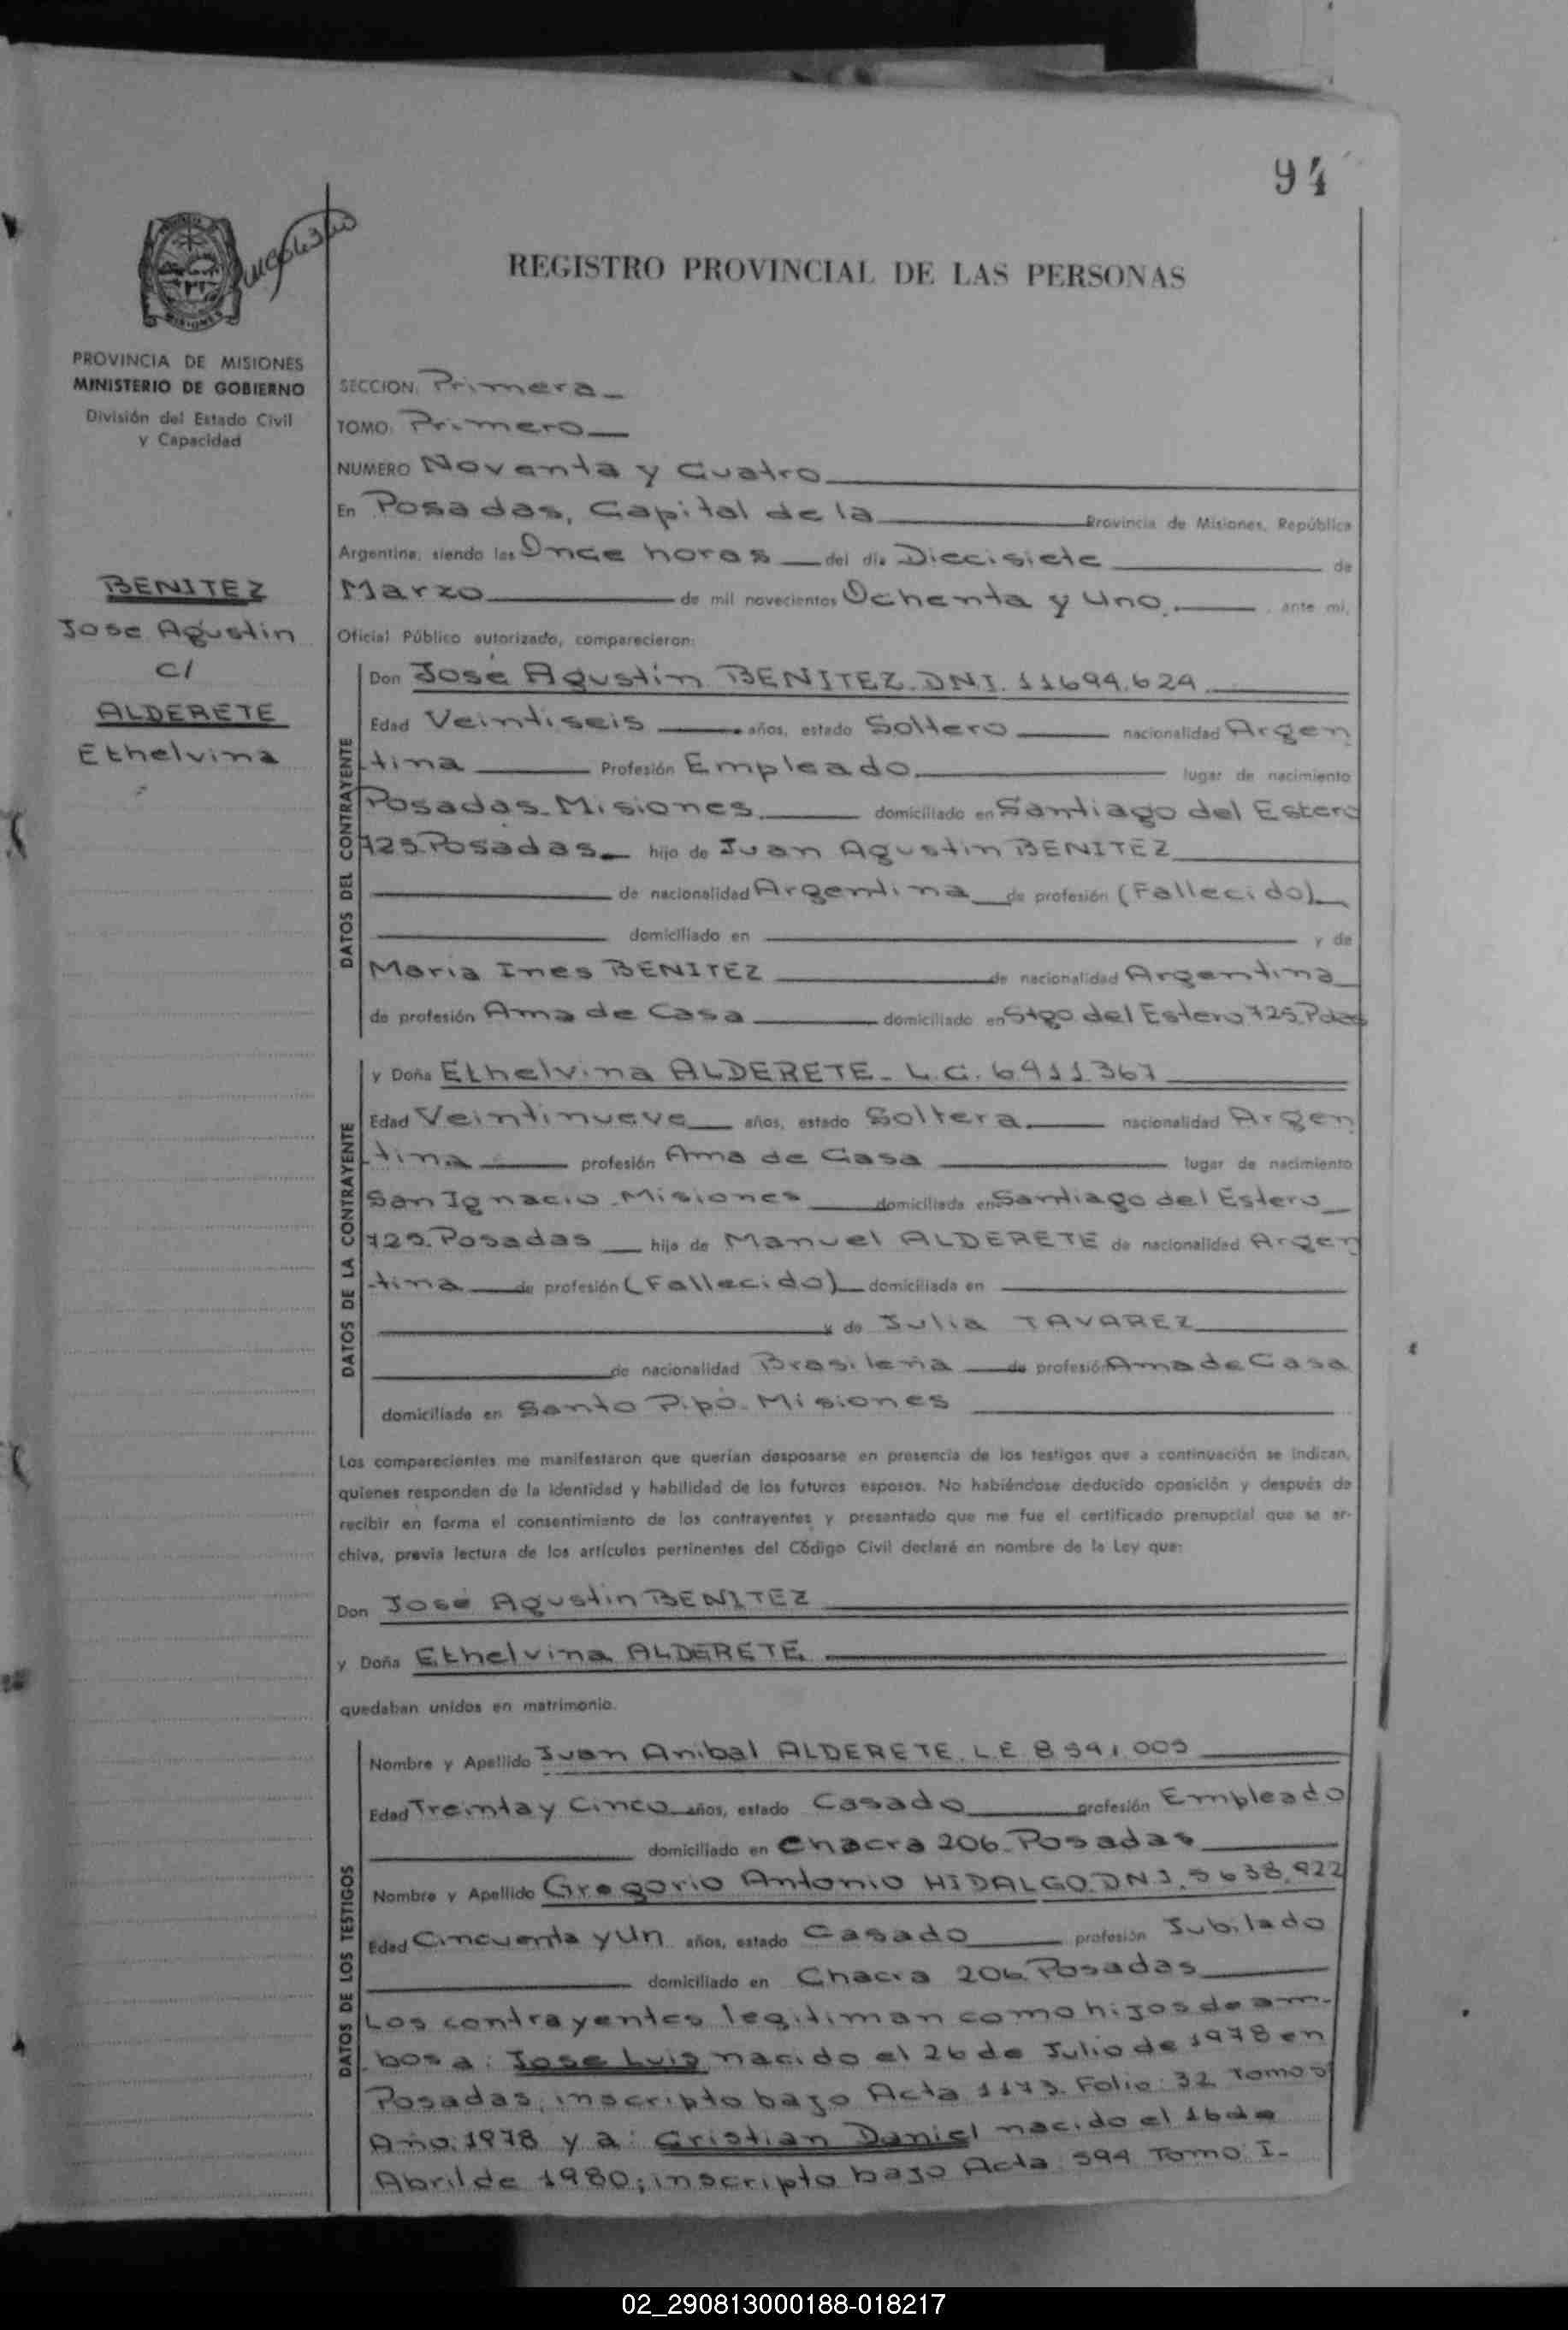 94
REGISTRO PROVINCIAL DE LAS PERSONAS
MISIONES
PROVINCIA DE MISIONES
MINISTERIO DE GOBIERNO
División del Estado Civil
y Capacidad
BENITEZ
Jose Agustin
c/
ALDERETE
Ethelvina
SECCION: Primera
TOMO: Primero
NUMERO Noventa y Cuatro
En Posadas, Capital de la Provincia de Misiones, República
Argentina, siendo las Once horas del día Diecisiete de
Marzo de mil novecientos Ochenta y Uno, ante mí,
Oficial Público autorizado, comparecieron:
DATOS DEL CONTRAYENTE
Don José Agustín BENITEZ. DNI. 11694.629
Edad Veintiseis años, estado Soltero nacionalidad Argen
tina Profesión Empleado lugar de nacimiento
Posadas. Misiones domiciliado en Santiago del Estero
725. Posadas hijo de Juan Agustin BENITEZ
de nacionalidad Argentina de profesión (Fallecido)
domiciliado en y de
Maria Ines BENITEZ de nacionalidad Argentina
de profesión Ama de Casa domiciliado en Stgo del Estero 725. Pdas
DATOS DE LA CONTRAYENTE
y Doña Ethelvina ALDERETE - L.C. 6911367
Edad Veintinueve años, estado Soltera nacionalidad Argen
tina profesión Ama de Casa lugar de nacimiento
San Ignacio - Misiones domiciliada en Santiago del Estero
725. Posadas hija de Manuel ALDERETE de nacionalidad Argen
tina de profesión (Fallecido) domiciliada en
y de Julia TAVAREZ
de nacionalidad Brasileña de profesión Ama de Casa
domiciliada en Santo Pipó - Misiones
Los comparecientes me manifestaron que querían desposarse en presencia de los testigos que a continuación se indican,
quienes responden de la identidad y habilidad de los futuros esposos. No habiéndose deducido oposición y después de
recibir en forma el consentimiento de los contrayentes y presentado que me fue el certificado prenupcial que se ar-
chiva, previa lectura de los artículos pertinentes del Código Civil declaré en nombre de la Ley que:
Don José Agustin BENITEZ
y Doña Ethelvina ALDERETE
quedaban unidos en matrimonio.
DATOS DE LOS TESTIGOS
Nombre y Apellido Juan Anibal ALDERETE. LE 8541005
Edad Treinta y Cinco años, estado Casado profesión Empleado
domiciliado en Chacra 206. Posadas
Nombre y Apellido Gregorio Antonio HIDALGO. DNI. 5638.922
Edad Cincuenta y Un años, estado Casado profesión Jubilado
domiciliado en Chacra 206. Posadas
Los contrayentes legitiman como hijos de am-
bos a: Jose Luis nacido el 26 de Julio de 1978 en
Posadas, inscripto bajo Acta 1173. Folio: 32 Tomo 5
Año. 1978 y a: Cristian Daniel nacido el 16 de
Abril de 1980; inscripto bajo Acta 594 Tomo: I-
02_290813000188-018217